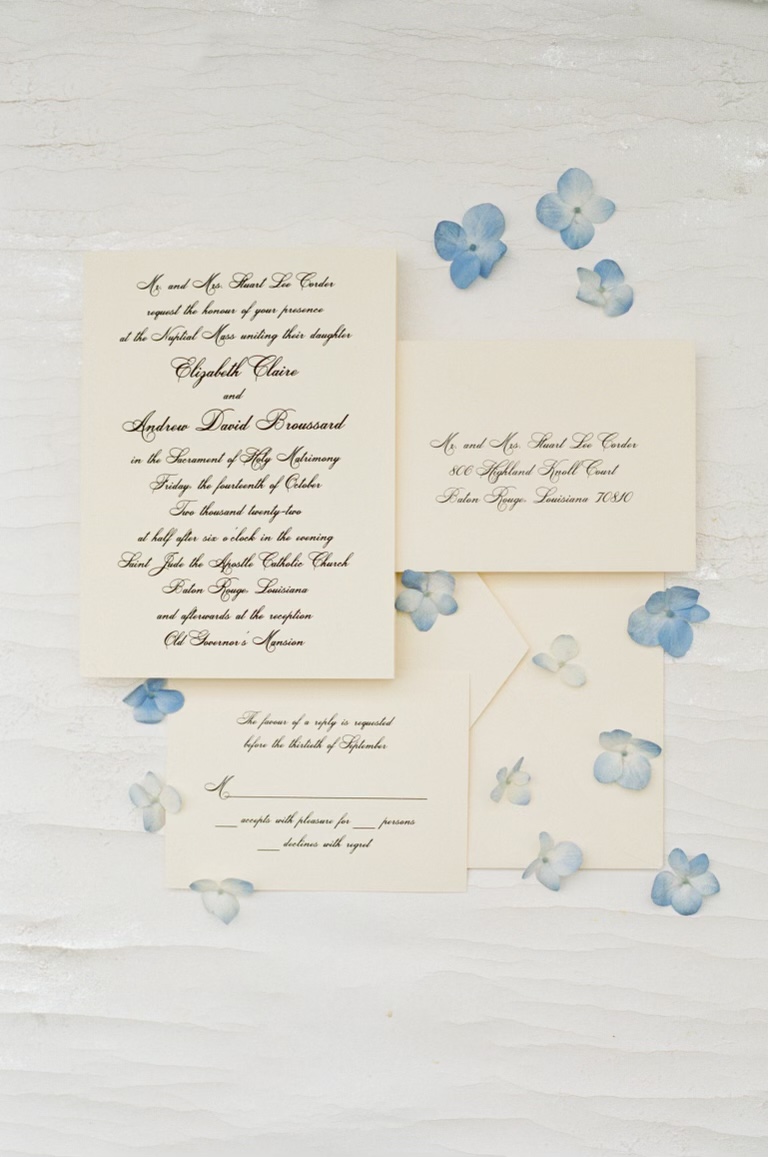 Mr. and Mrs. Stuart Lee Corder
request the honour of your presence
at the Nuptial Mass uniting their daughter
Elizabeth Claire
and
Andrew David Broussard
in the Sacrament of Holy Matrimony
Friday, the fourteenth of October
Two thousand twenty-two
at half after six o'clock in the evening
Saint Jude the Apostle Catholic Church
Baton Rouge, Louisiana
and afterwards at the reception
Old Governor's Mansion
Mr. and Mrs. Stuart Lee Corder
806 Highland Knoll Court
Baton Rouge, Louisiana 70810
The favour of a reply is requested
before the thirtieth of September
M
___ accepts with pleasure for ___ persons
___ declines with regret